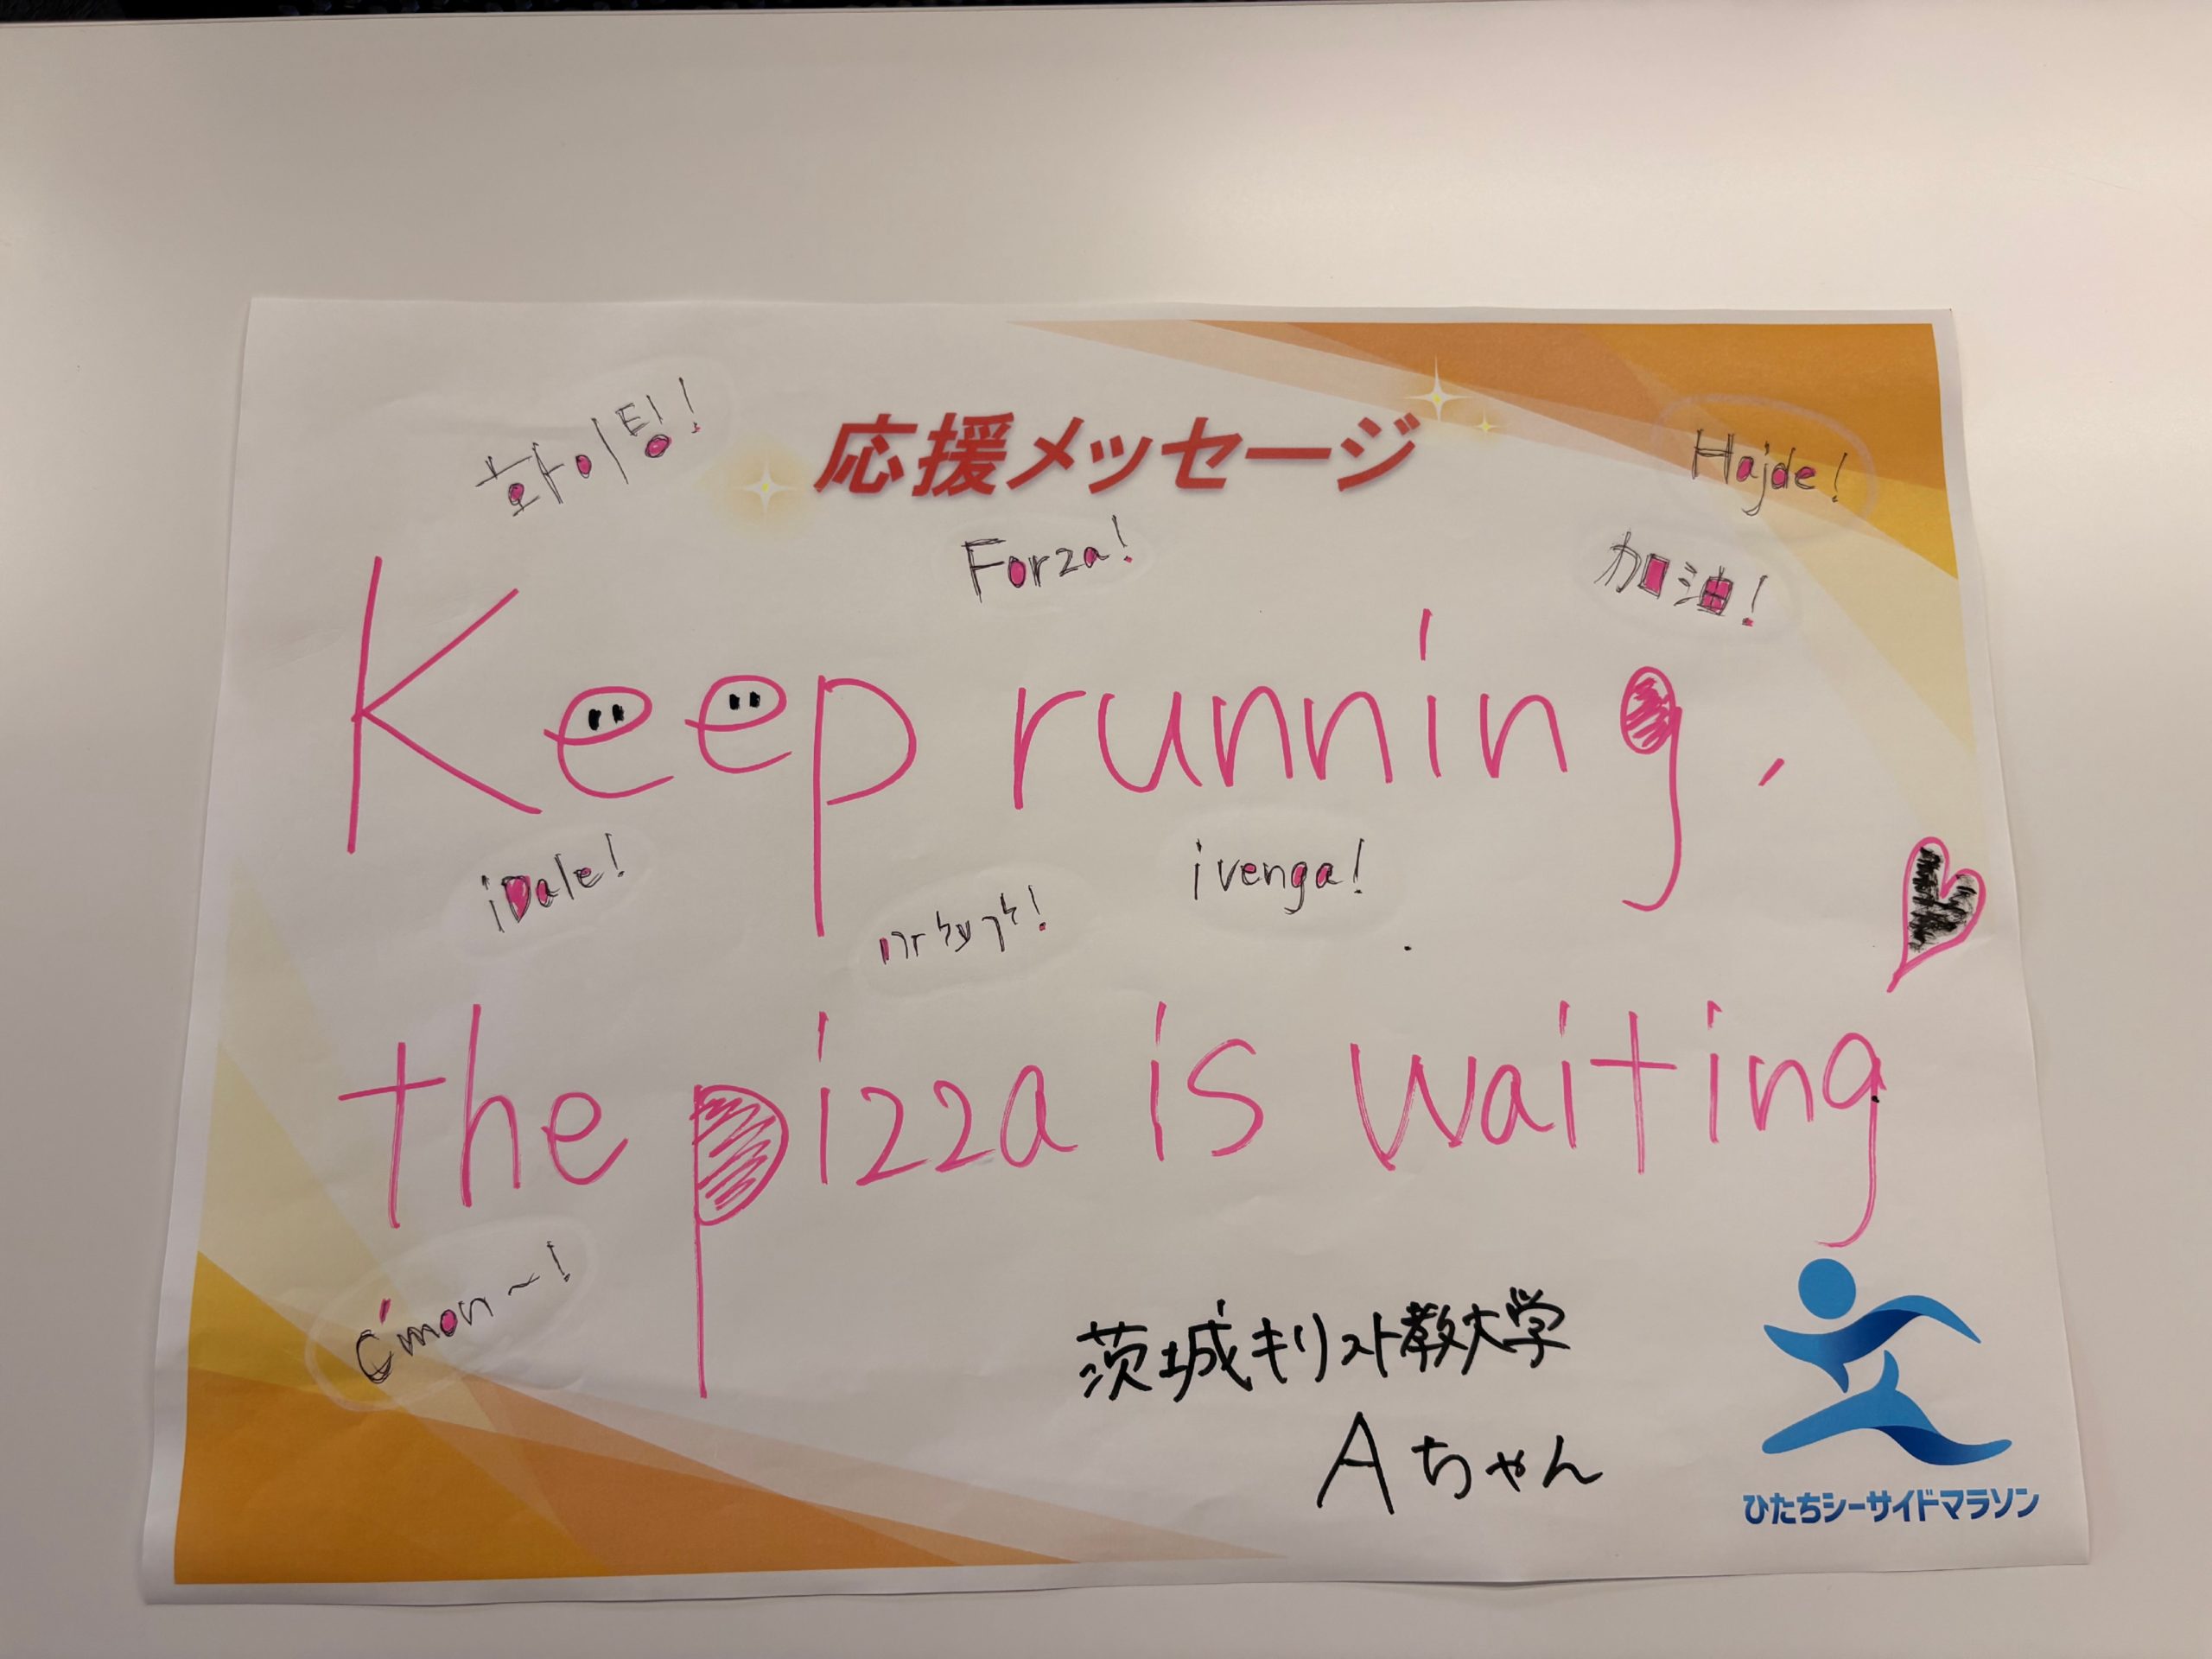 화이팅!
応援メッセージ
Hajde!
Forza!
加油!
Keep running,
¡Dale!
¡venga!
the pizza is waiting
C'mon~!
茨城キリスト教大学
Aちゃん
ひたちシーサイドマラソン